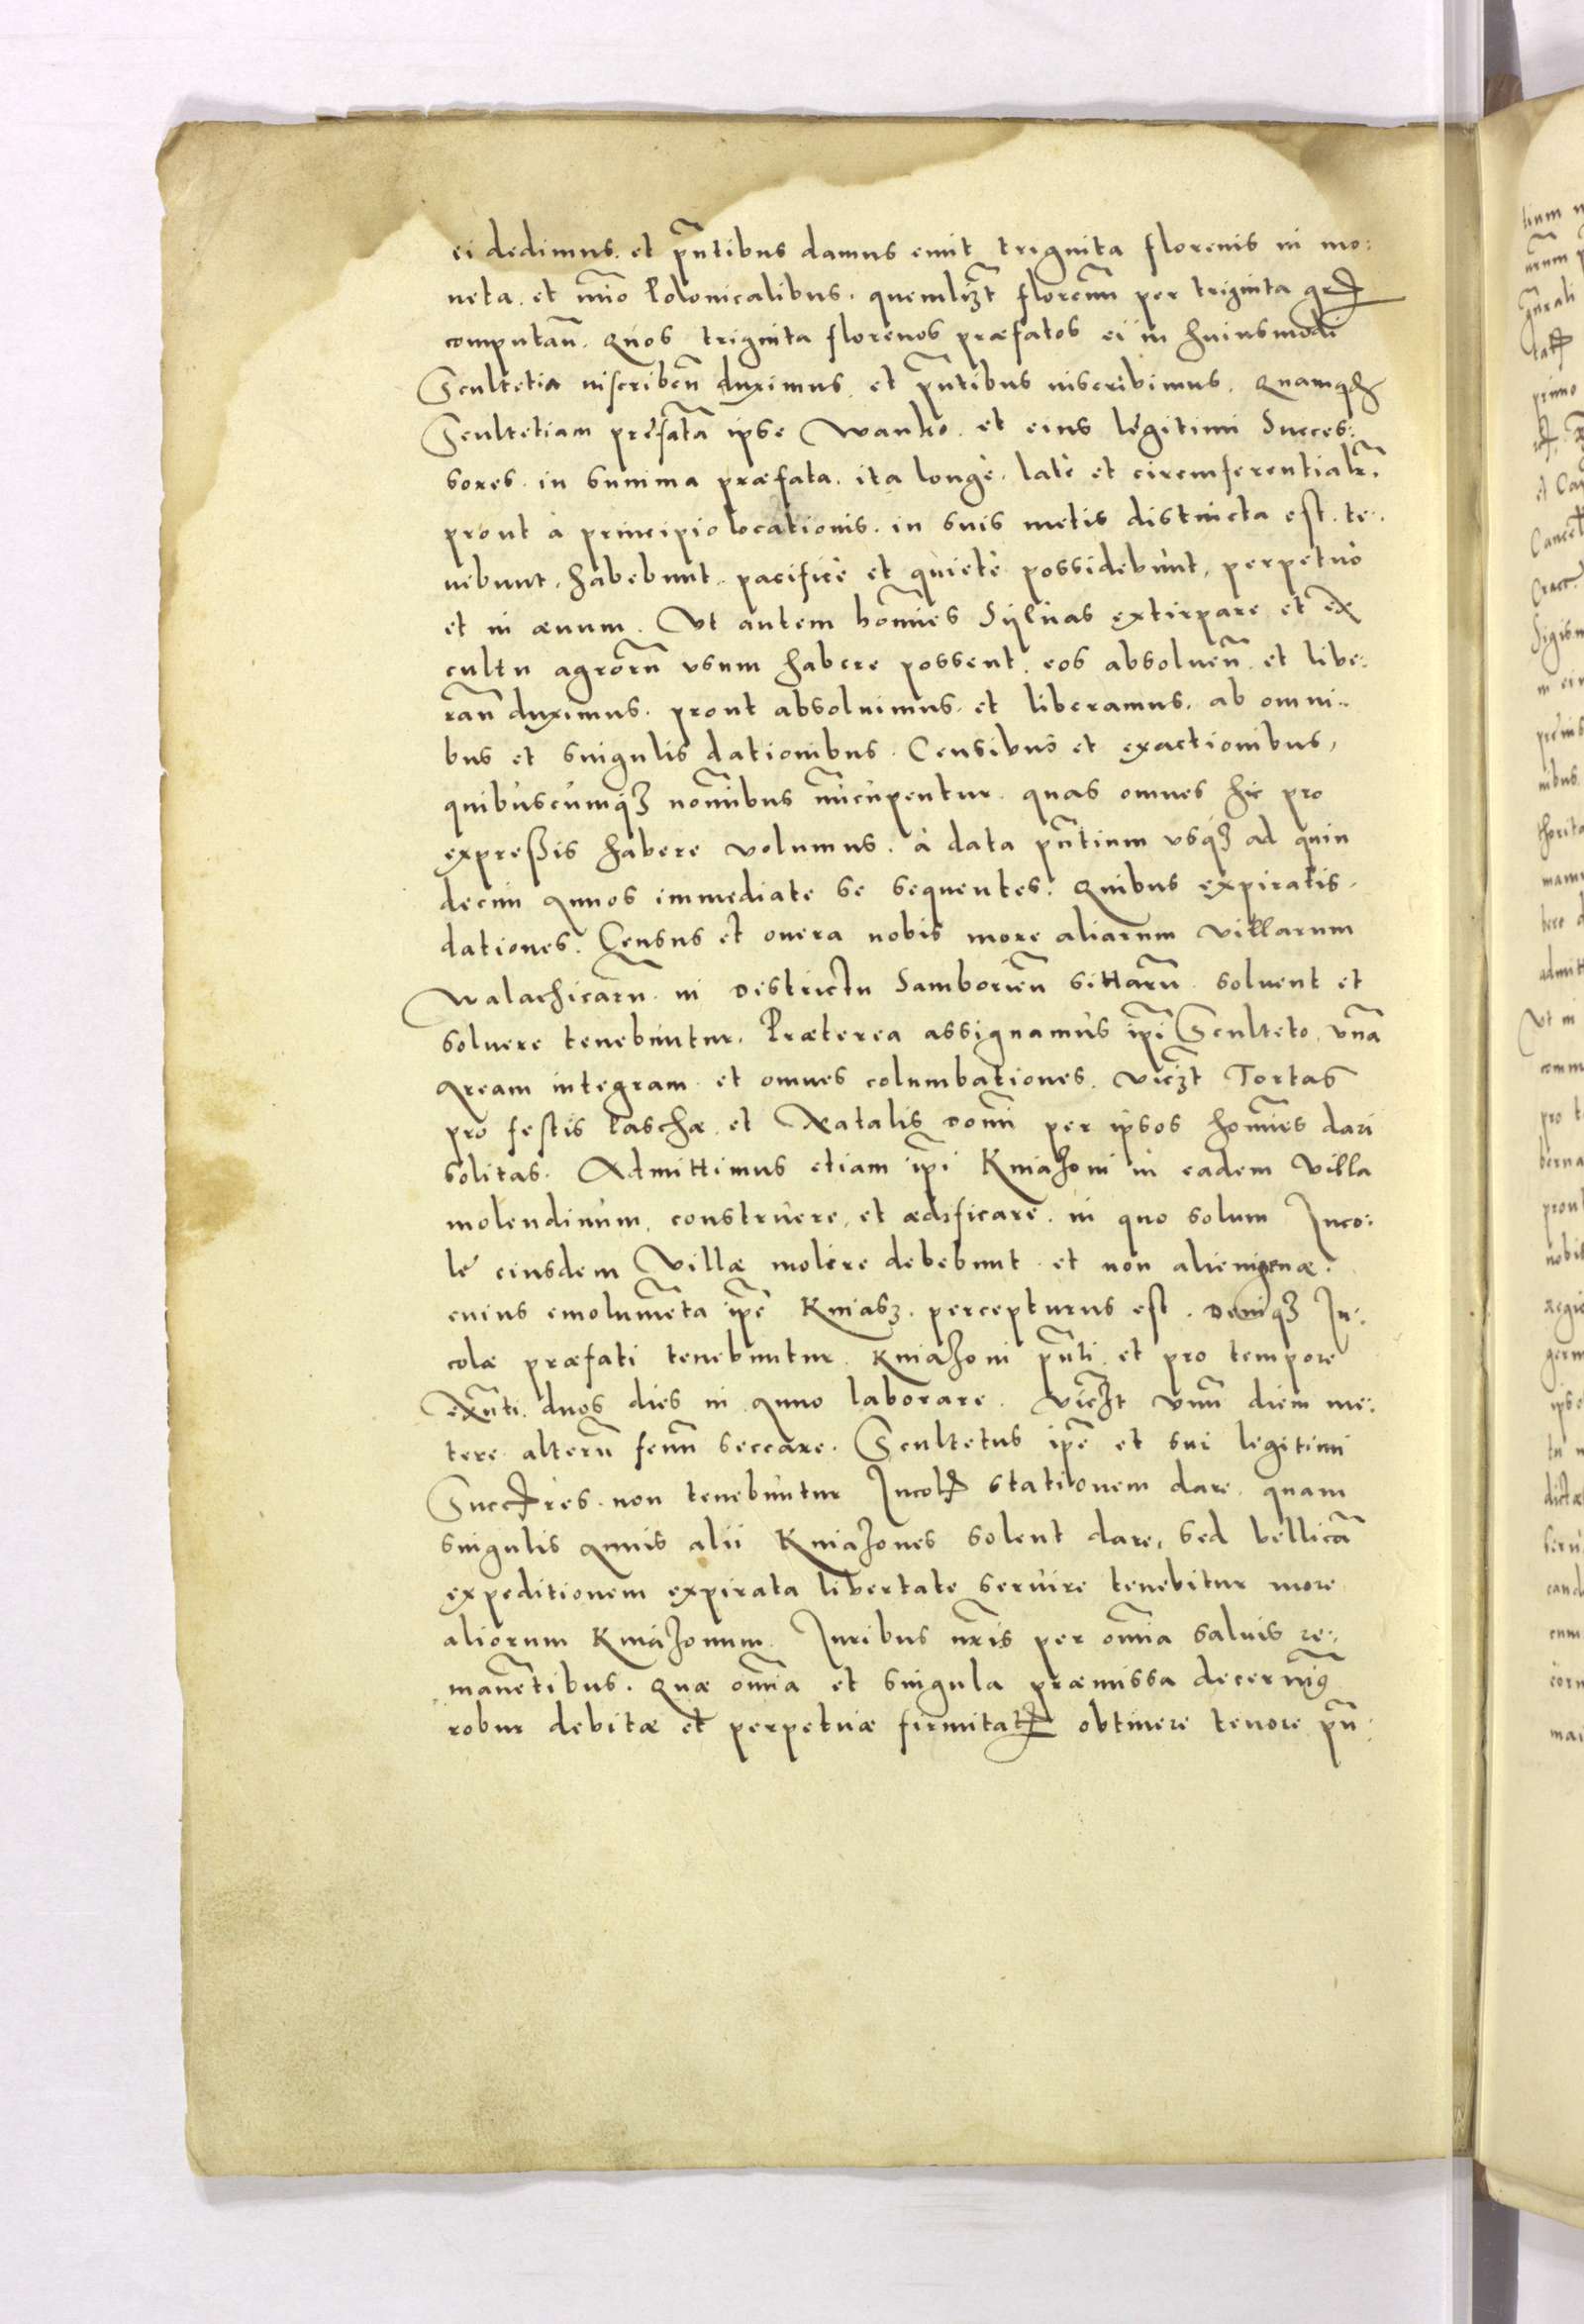 ei dedimus. et pñtibus damus emit triginta florenis in mo:
neta. et nũio Polonicalibus. quemlizt florenũ per triginta gr̃
computañ. Quos triginta florenos præfatos ei in huiusmodi
Scultetia inscribeñ duximus. et pñtibus inscribimus. Quamqȝ
Scultetiam prefatã ipse Wanko. et eius legitimi Succes:
sores. in summa præfata. ita longè. latè et circumferentialr̃.
prout à principio locationis. in suis metis distincta est. te:
nebunt. habebunt. pacificè et quietè possidebunt, perpetuò
et in æuum. Vt autem homĩes Syluas extirpare et ex
cultu agrorũ vsum habere possent. eos absoluen̄. et libe:
ran̄ duximus. prout absoluimus. et liberamus. ab omni:
bus et singulis dationibus. Censibus et exactionibus,
quibuscumqȝ nomĩbus nũcupentur. quas omnes hic pro
expreßis habere volumus. à data pñtium vsqȝ ad quin
decim annos immediate se sequentes. Quibus expiratis.
dationes. Census et onera nobis more aliarum villarum
Walachicarũ. in Districtu Samborien̄ sittarũ. soluent et
soluere tenebuntur. Præterea assignamus ip̃i Sculteto. vnã
Aream integram et omnes columbationes. vicȝt Tortas
pro festis Paschæ. et Natalis Domĩ per ipsos homĩes dari
solitas. Admittimus etiam ip̃i Kniazoni in eadem Villa
molendinum. construere, et ædificare. in quo solum Inco:
le eiusdem Villæ molere debebunt et non alienigenæ.
cuius emolumẽta ip̃e Kniasz. percepturus est. Deniqȝ In:
colæ præfati tenebuntur. Kniazoni pñti. et pro tempore
exñti. duos dies in Anno laborare. vicȝt vnũ diem me:
tere alterũ fenũ seccare. Scultetus ip̃e et sui legitimi
Succr̃res. non tenebuntur Incol̃ stationem dare. quam
singulis Annis alii Kniazones solent dare, sed bellicã
expeditionem expirata libertate seruire tenebitur more
aliorum Kniazonum. Iuribus nr̃is per om̃ia saluis re:
manẽtibus. Quæ om̃ia et singula præmissa decernim̃9
robur debitæ et perpetuæ firmitat̃ obtinere tenore pñ: